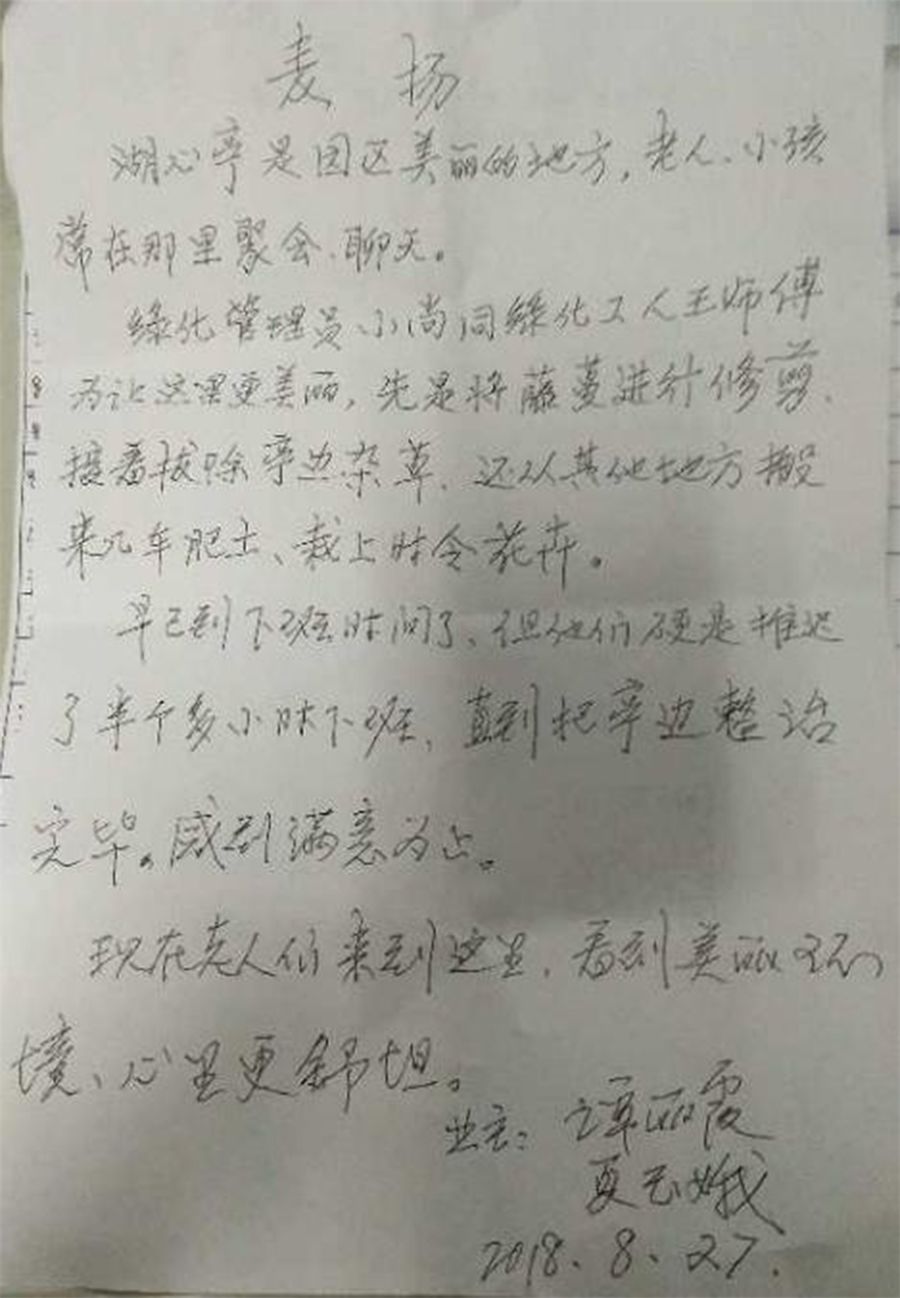 表扬
湖心亭是园区美丽的地方，老人、小孩
常在那里聚会、聊天。
绿化管理员小尚同绿化工人王师傅
为让这里更美丽，先是将藤蔓进行修剪、
接着拔除亭边杂草、还从其他地方搬
来几车肥土、栽上时令花卉。
早已到下班时间了、但他们硬是推迟
了半个多小时下班、直到把亭边整治
完毕。感到满意为止。
现在老人们来到这里、看到美丽环
境、心里更舒坦。
业主：谭丽霞
夏云娥
2018.8.27.